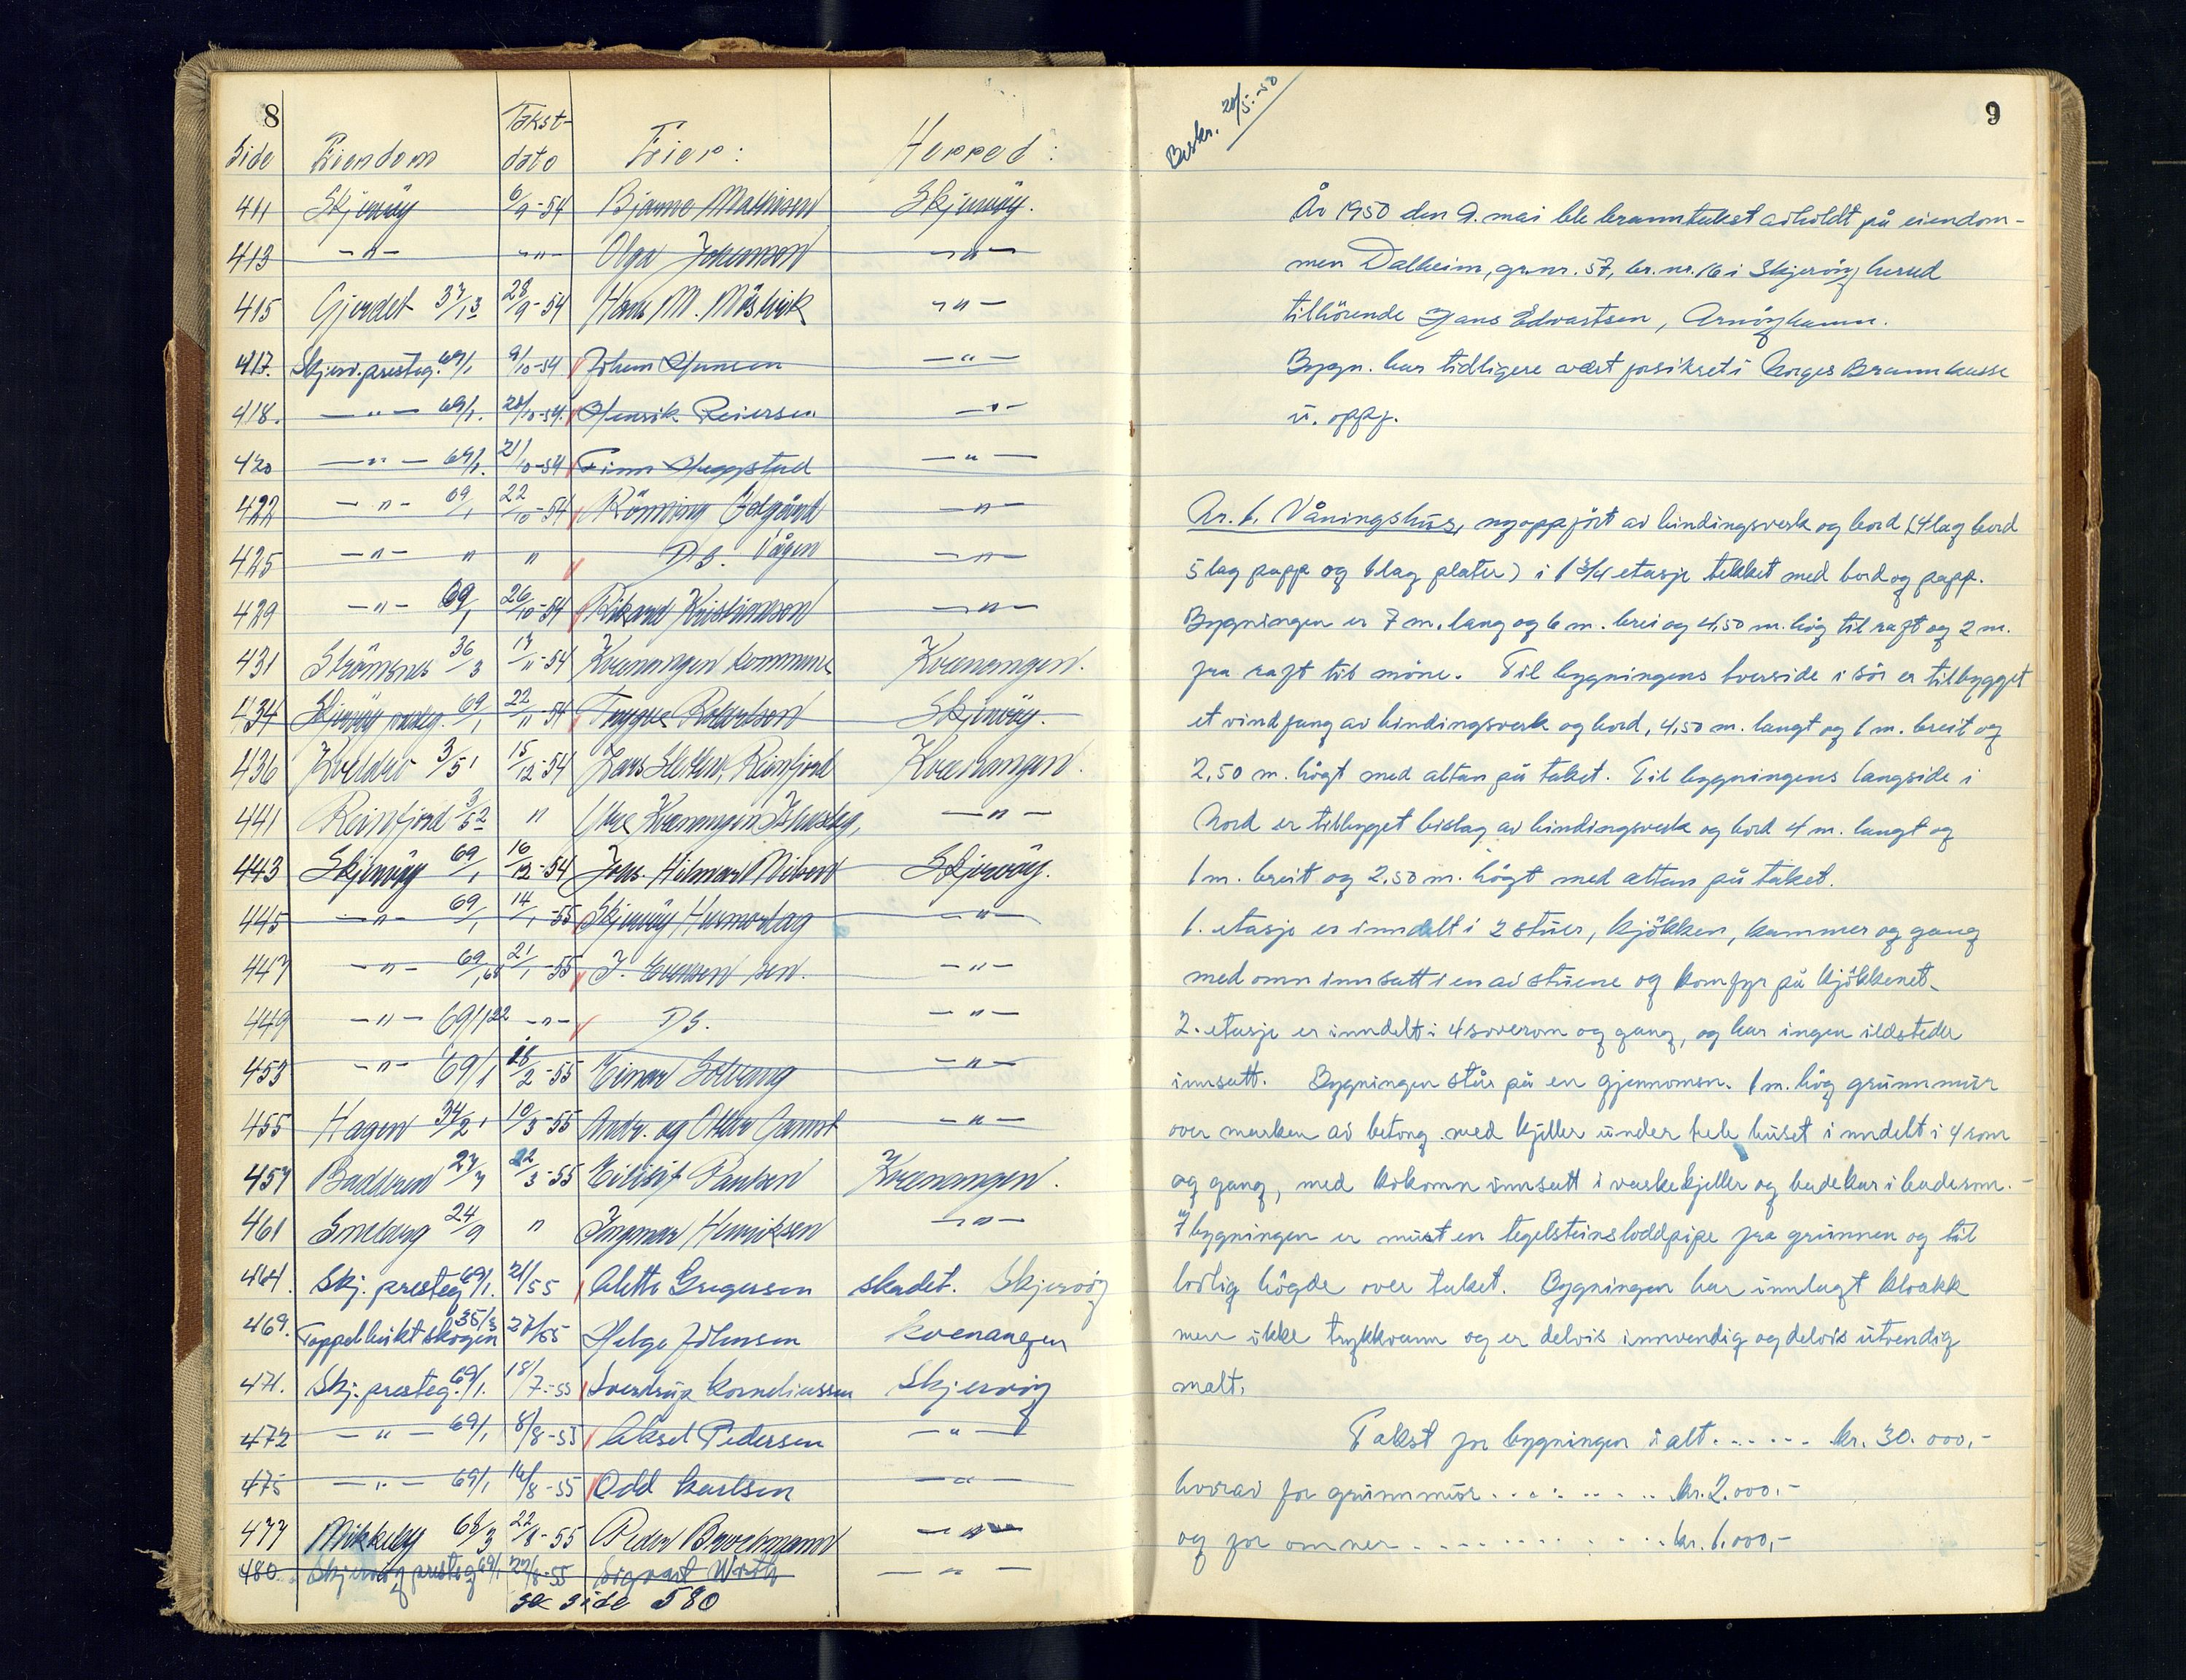 8
Side Eiendom Takst-dato Eier: Herred:
411 Skjervöy 6/9-54 Bjarne Mathisen Skjervöy.
413 -"- -"- Olga Johansen -"-
415 Gjerdet 37/13 28/9-54 Hans M. -"-
417. Skjerv. presteg. 69/1 9/10-54 Johan Hansen -"-
418. -"- 69/1. 20/10-54. Henrik Reiersen -"-
420 -"- 69/1. 21/10-54 Finn Heggstad -"-
422 -"- 69/1 22/10-54 Rönning -"-
425 -"- " " D.S. Vågen -"-
429 -"- 69/1 26/10-54 Rikard Kristiansen -"-
431 Strömsnes 36/3 17/11-54 Kvenangen kommune Kvenangen.
434 Skjervöy presteg. 69/1 22/11-54 Trygve Robertsen Skjervöy.
436 3/51 15/12-54 Lars Reinfjord Kvenangen.
441 Reinfjord 3/52 " Ytre Kvenangen -"-
443 Skjervöy 69/1 16/12-54 Joh. Hilmar Nilsen Skjervöy.
445 -"- 69/1 14/1-55 Skjervöy Husmorlag -"-
447 -"- 69/1,68 21/1-55 J. sen. -"-
449 -"- 69/1,122 -"- D.S. -"-
453 -"- 69/1 18/2-55 Einar Solvang -"-
455 Hagen 34/21 10/3-55 Andr. og Ottar Gamst -"-
457 Badderen 27/7 22/3-55 Eilif Paulsen Kvenangen.
461 Sneberg 24/9 " Ingmar Henriksen -"-
464. Skj. presteg. 69/1. 21/55 Alette Gregersen skadet. Skjervöy
469. Toppelbukt skogen 35/3 27/55 Helge Johnsen Kvenangen
471. Skj. presteg. 69/1. 18/7-55 Sverdrup Korneliussen Skjervöy
472 -"- 69/1 8/8-55 Aksel Pedersen -"-
475 -"- 69/1 16/8-55 Odd Karlsen -"-
477 Mikkelg 68/3 22/8-55 Peder -"-
480 Skjervöy presteg 69/1 22/8-55 Sigvart Wirth -"-
se side 580
9
Beskr. 20/5.-50
År 1950 den 9. mai ble branntakst avholdt på eiendom-
men Dalheim, gr.nr. 57, br.nr. 16 i Skjervöy herred
tilhörende Hans Edvartsen, Arnöyhamn.
Bygn. har tidligere vært forsikret i Norges Brannkasse
u. oppf.
Nr. 1. Våningshus, nyoppfört av bindingsverk og bord (4 lag bord
5 lag papp og 1 lag plater) i 1 3/4 etasje tekket med bord og papp.
Bygningen er 7 m. lang og 6 m. brei og 4,50 m. høg til raft og 2 m.
fra raft til möne. Til bygningens tverside i sör er tilbygget
et vindfang av bindingsverk og bord, 4,50 m. langt og 1 m. breit og
2,50 m. högt med altan på taket. Til bygningens langside i
Nord er tilbygget bislag av bindingsverk og bord 4 m. langt og
1 m. breit og 2,50 m. högt med altan på taket.
1. etasje er inndelt i 2 stuer, kjökken, kammer og gang
med omn innsatt i en av stuene og komfyr på kjökkenet.
2. etasje er inndelt i 4 soverom og gang, og har ingen ildsteder
innsatt. Bygningen står på en gjennomsn. 1 m. høg grunnmur
over marken av betong med kjeller under hele huset inndelt i 4 rom
og gang, med kokomn innsatt i vaskekjeller og badekar i baderom.
I bygningen er murt en tegelsteinsloddpipe fra grunnen og til
lovlig högde over taket. Bygningen har innlagt kloakk
men ikke trykkvann og er delvis innvendig og delvis utvendig
malt.
Takst for bygningen i alt...... kr. 30.000,-
hvorav for grunnmur......... kr. 2.000.-
og for omner............. kr. 1.000,-